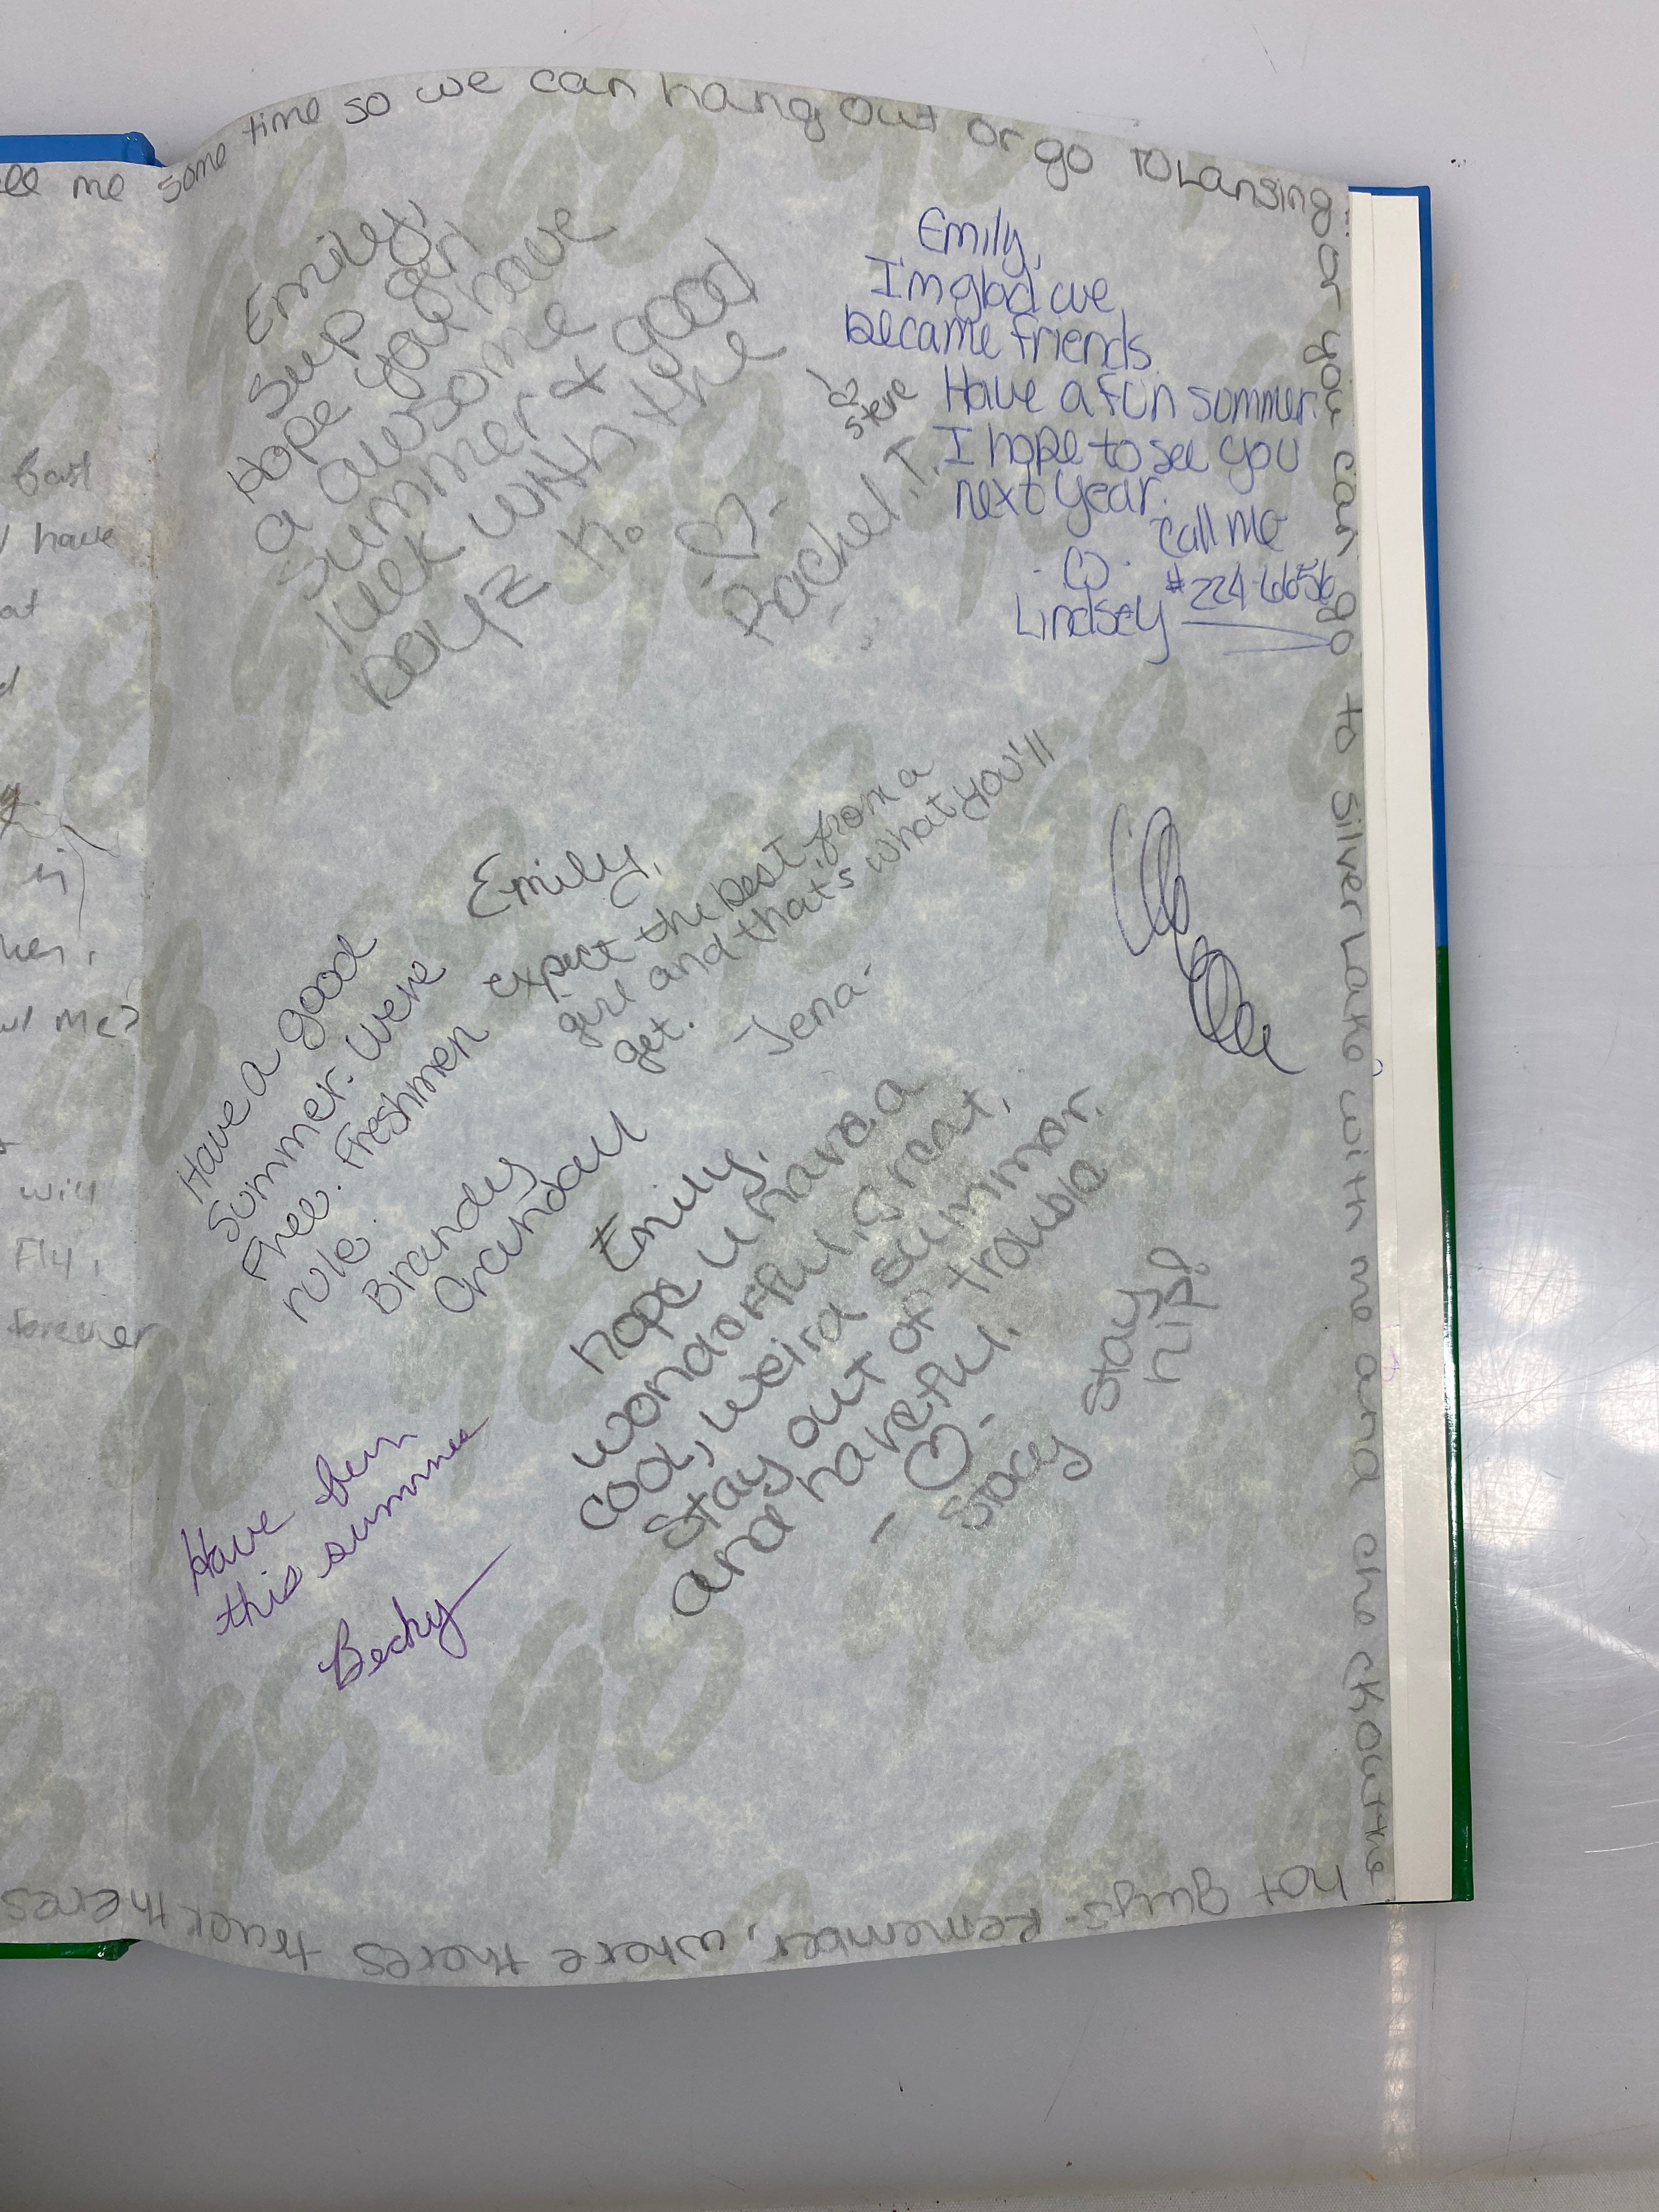 me some time so we can hang out or go to Lansing or you can go to Silver Lake with me and one ckout the
hot guys. Remember, where theres truck theres
Emily,
Sup girl
Hope you have
a awsome
summer & good
luck with the
boyz
Rachel. T.
Steve
Emily,
I'm glad we
became friends.
Have a fun summer.
I hope to see you
next year.
call me
#224-6656
Lindsey
Emily,
expect the best from a
girl and that's what you'll
get.
-Jena-
Have a good
Summer. Were
Free. Freshmen
rule.
Brandey
Crandall
Emily,
hope u have a
wonderful, grant,
cool, weird summer.
Stay out of trouble
and have ful.
Stacy
Stay
hip!
Have fun
this summer
Becky
best
have
at
me?
will
Fly,
forever
98